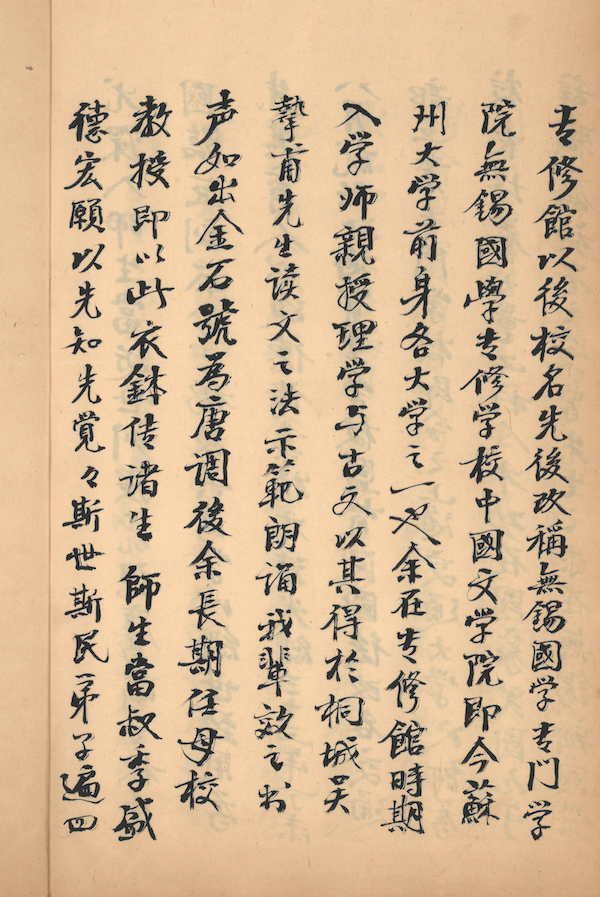 专修館以後校名先後改稱無錫國学专門学
院無錫國學专修学校中國文学院即今蘇
州大学前身各大学之一也余在专修館時期
入学师親授理学与古文以其得於桐城吴
摯甫先生读文之法示範朗诵我輩效之书
声如出金石號為唐調後余長期任母校
教授即以此衣鉢传诸生 師生當叔季盛
德宏願以先知先覺々斯世斯民弟子遍四